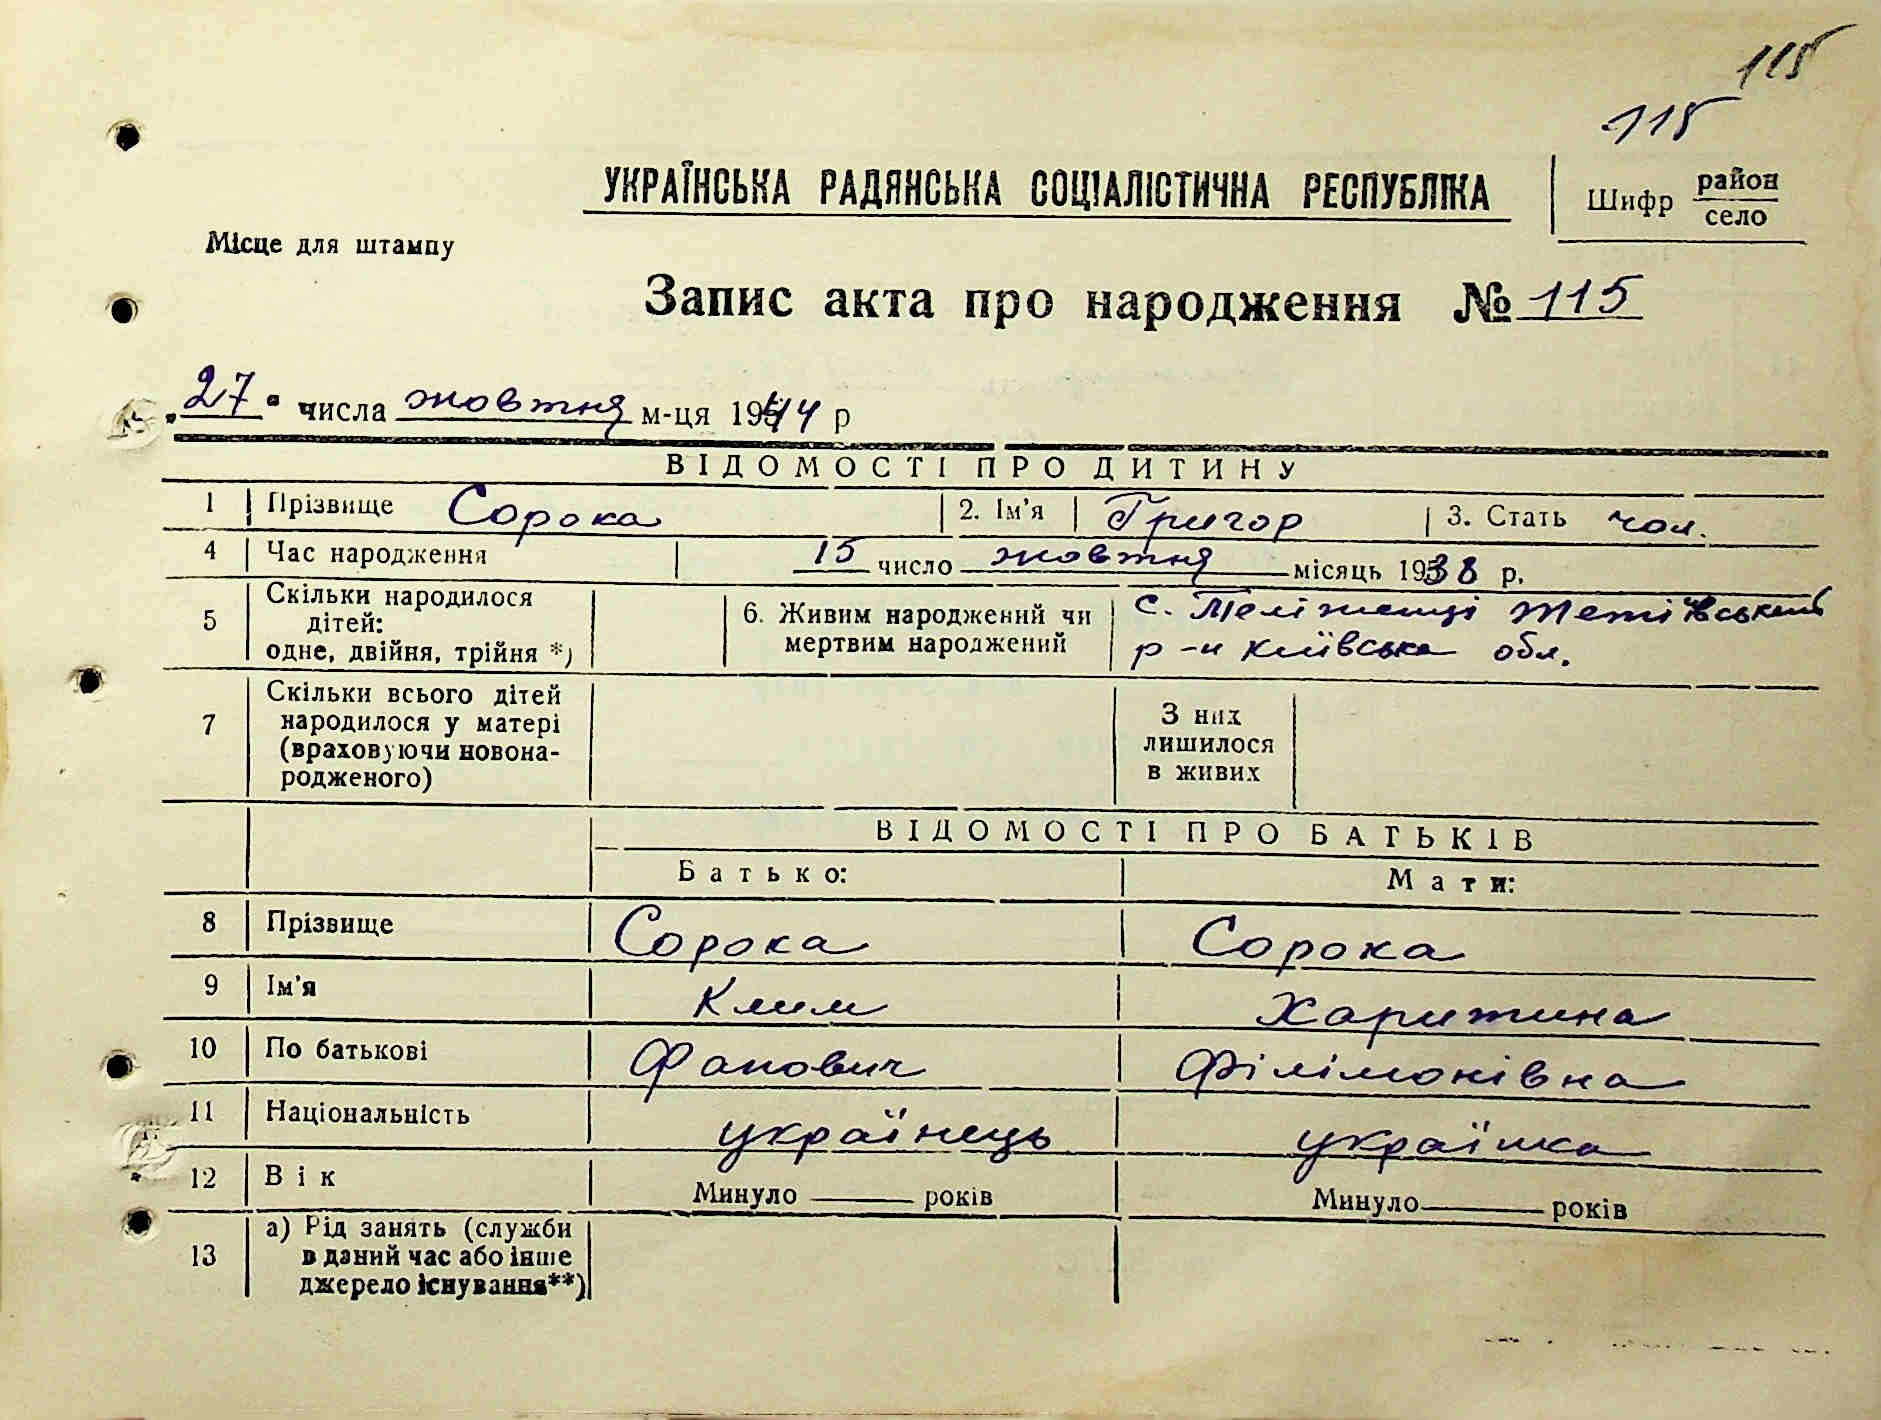 115
115
УКРАЇНСЬКА РАДЯНСЬКА СОЦІАЛІСТИЧНА РЕСПУБЛІКА
Шифр район
село
Місце для штампу
Запис акта про народження № 115
„27" числа жовтня м-ця 1944 р
ВІДОМОСТІ ПРО ДИТИНУ
1 Прізвище Сорока 2. Ім'я Григор 3. Стать чол.
4 Час народження 15 число жовтня місяць 1938 р.
5 Скільки народилося дітей: одне, двійня, трійня *)
6. Живим народжений чи мертвим народжений
с. Теліженці Тетіївський
р-н Київська обл.
7 Скільки всього дітей народилося у матері (враховуючи новонародженого)
З них лишилося в живих
ВІДОМОСТІ ПРО БАТЬКІВ
Батько: Мати:
8 Прізвище Сорока Сорока
9 Ім'я Клим Харитина
10 По батькові Філімонівна
11 Національність українець українка
12 Вік Минуло років Минуло років
13 а) Рід занять (служби в даний час або інше джерело існування**)